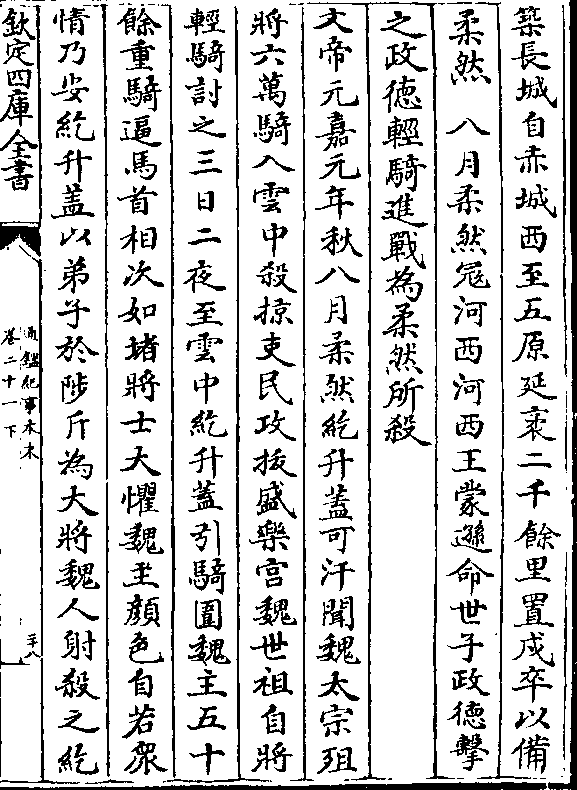 築長城自赤城西至五原延袤二千餘里置戍卒以備
柔然　八月柔然冦河西河西王蒙遜命世子政德擊
之政徳輕騎進戰為柔然所殺
文帝元嘉元年秋八月柔然紇升蓋可汗聞魏太宗殂
將六萬騎入雲中殺掠吏民攻拔盛樂宫魏世祖自將
輕騎討之三日二夜至雲中紇升蓋引騎圍魏主五十
餘重騎逼馬首相次如堵將士大懼魏主顔色自若衆
情乃安紇升蓋以弟子於陟斤為大將魏人射殺之紇
欽定四庫全書
通鑑紀事本末
卷二十一下
三十八